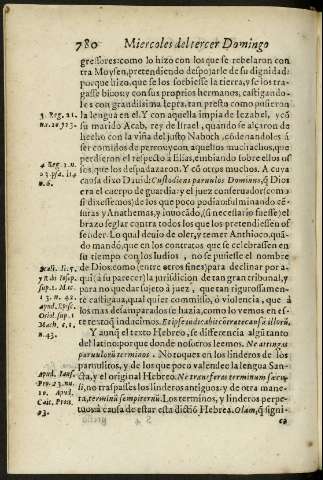 780 Miercoles del tercer Domingo
gressores: como lo hizo con los que se rebelaron con
tra Moysen, pretendiendo despojarle de su dignidad:
porque hizo, que se los sorbiesse la tierra, y se los tra-
gasse biuos; y con sus proprios hermanos, castigando-
les con grandissima lepra, tan presto como pusieron
la lengua en el. Y con aquella impia de Iezabel, y cõ
su marido Acab, rey de Israel, quando se alçaron de
hecho con la viña del justo Naboth, cõdenandolos à
ser comidos de perros; y con aquellos muchachos, que
perdieron el respecto à Elias, embiando sobre ellos us
sos, que los despedazaron. Y cõ otros muchos. A cuya
causa dixo Dauid: Custodiens paruulos Dominus, q̃ Dios
era el cuerpo de guardia y el juez conseruador (como
si dixessemos) de los que poco podian: fulminando cē
suras y Anathemas, y inuocãdo, (si necessario fuesse) el
braço seglar contra todos los que los pretendiessen of
fender. Lo qual deuio de ver, y temer Anthioco, quã-
do mandò, que en los contratos que se celebrassen en
su tiempo con los Iudios, no se pusiesse el nombre
de Dios, como (entre otros fines) para declinar por a-
qui (à su parecer) la jurisdicion de tan gran tribunal, y
para no quedar sujeto à juez, que tan rigurosamen-
te castigaua, qual quier commisso, ò violencia, que à
los mas desamparados se hazia, como lo vemos en es-
te texto q̃ induzimos. Et ipse iudicabit corteccausã illorũ.
Y aunq̃ el texto Hebreo, se differencia algũ tanto
del latino: porque donde nosotros leemos. Ne attingas
paruulorũ terminos. No toques en los linderos de los
paruulitos, y de los que poco valen: lee la lengua San-
cta, y el original Hebreo. Ne transferas terminum sæcu-
li, no traspasses los linderos antiguos: y de otra ma-
nera, terminũ sempiternũ. Los terminos, y linderos perpe-
tuos: à causa de estar esta dictiõ Hebrea. Olam, q̃ signi-
3. Reg. 21.
4 Reg. 2. n.
n. 6.
13. n. 42.
n. 43.
10. Apud.
03.